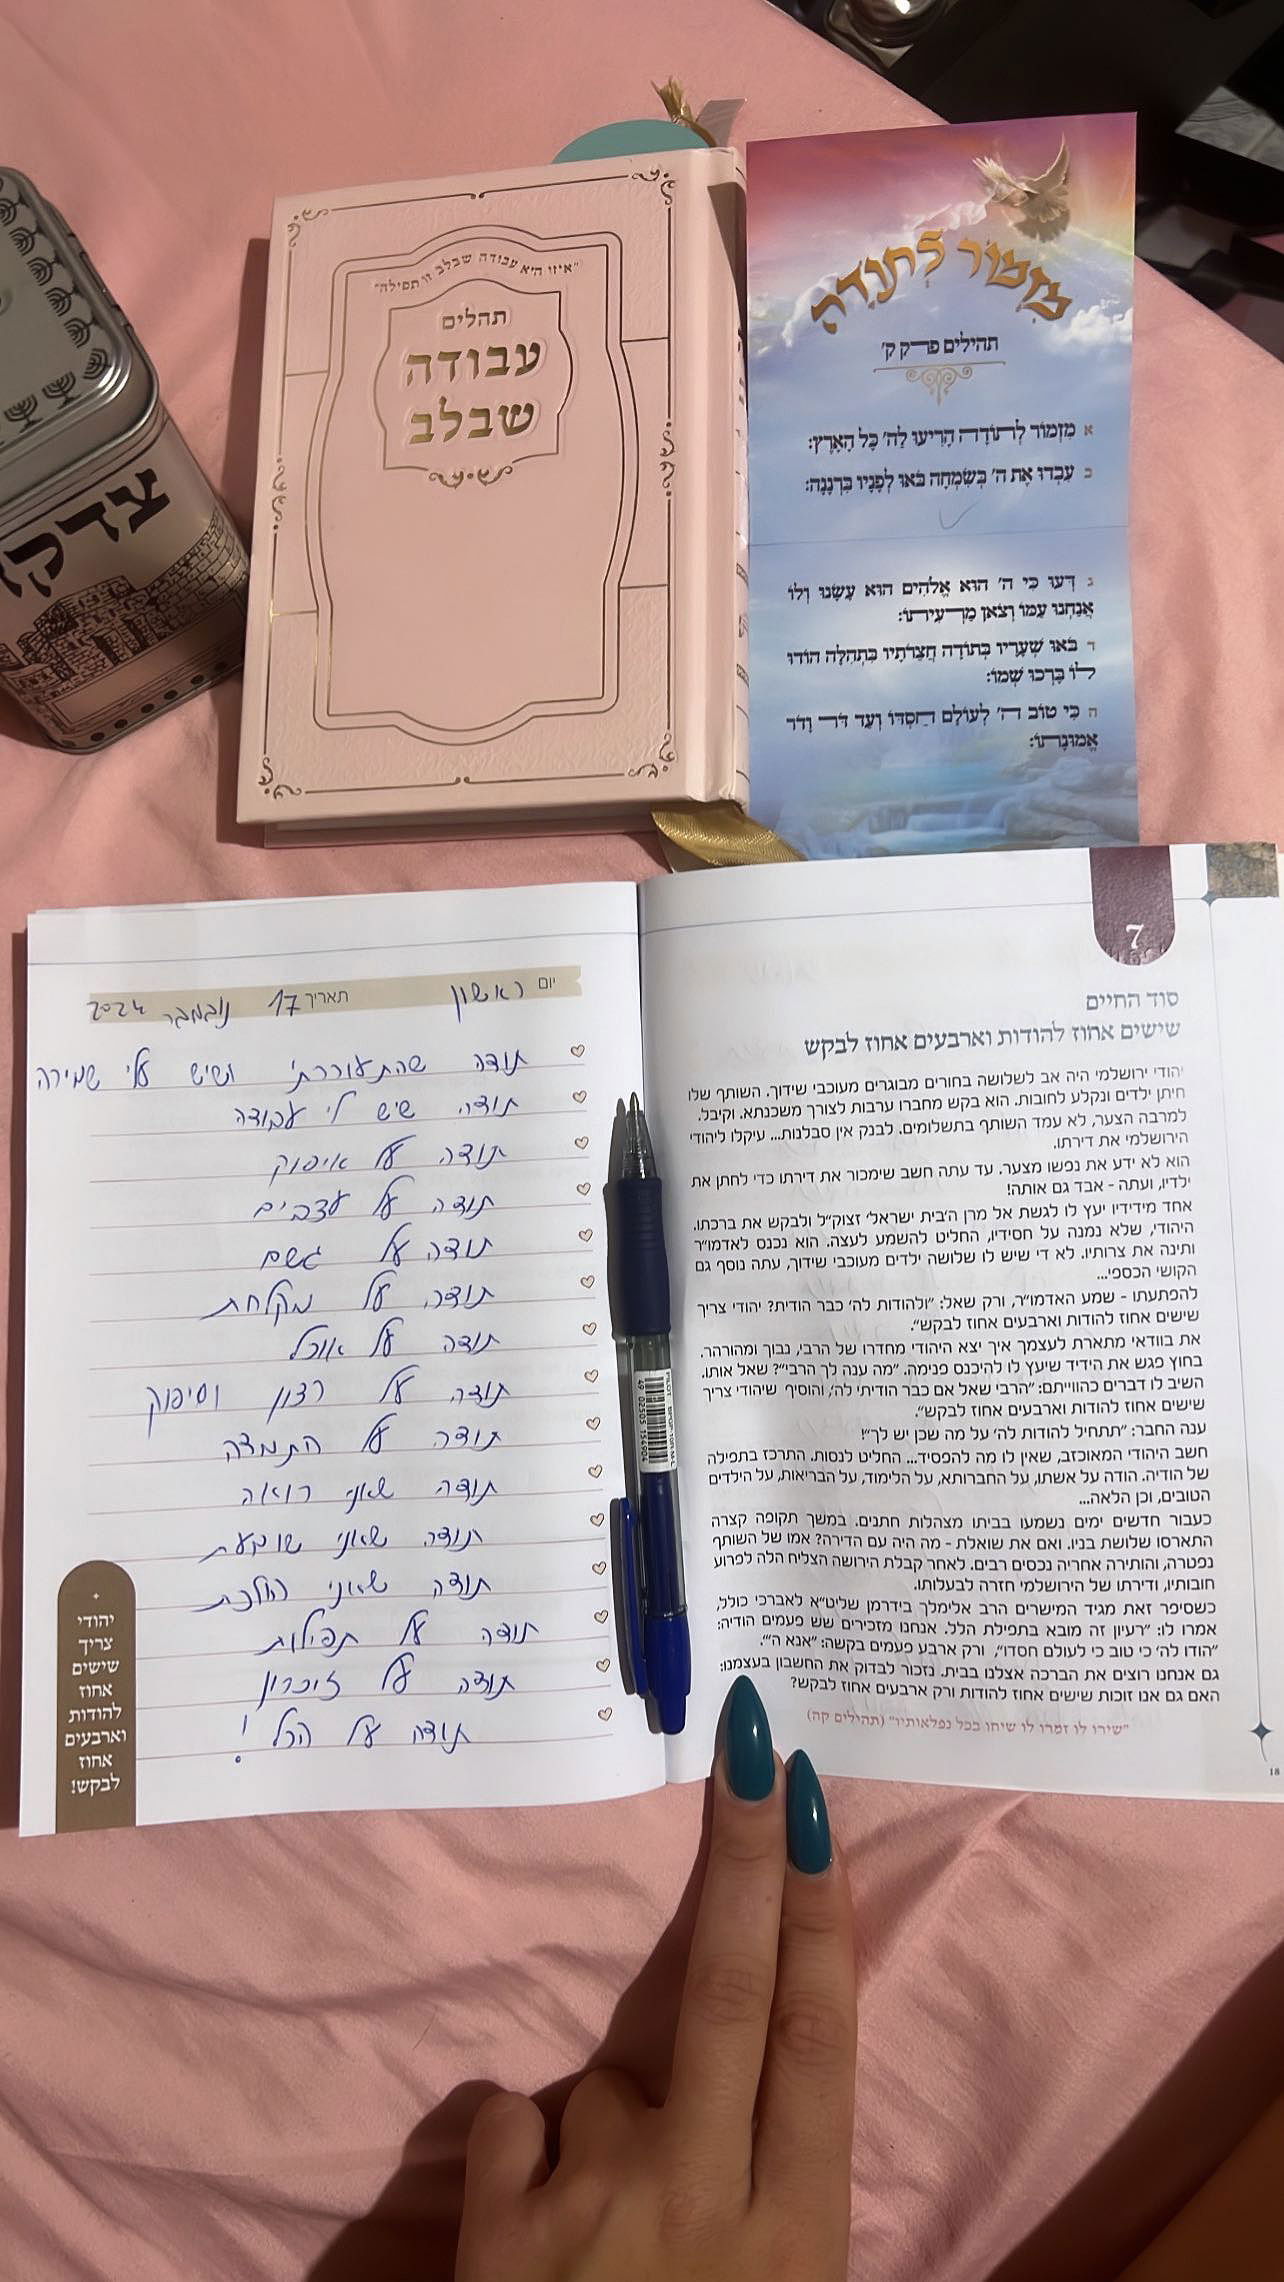 צדק
"איזו היא עבודה שבלב זו תפילה"
תהלים
עבודה
שבלב
מזמור לתודה
תהילים פרק ק'
א מִזְמוֹר לְתוֹדָה הָרִיעוּ לַה' כָּל הָאָרֶץ:
ב עִבְדוּ אֶת ה' בְּשִׂמְחָה בֹּאוּ לְפָנָיו בִּרְנָנָה:
ג דְּעוּ כִּי ה' הוּא אֱלֹהִים הוּא עָשָׂנוּ וְלוֹ
אֲנַחְנוּ עַמּוֹ וְצֹאן מַרְעִיתוֹ:
ד בֹּאוּ שְׁעָרָיו בְּתוֹדָה חֲצֵרֹתָיו בִּתְהִלָּה הוֹדוּ
לוֹ בָּרְכוּ שְׁמוֹ:
ה כִּי טוֹב ה' לְעוֹלָם חַסְדּוֹ וְעַד דֹּר וָדֹר
אֱמוּנָתוֹ:
7
סוד החיים
שישים אחוז להודות וארבעים אחוז לבקש
יהודי ירושלמי היה אב לשלושה בחורים מבוגרים מעוכבי שידוך. השותף שלו
חיתן ילדים ונקלע לחובות. הוא בקש מחברו ערבות לצורך משכנתא. וקיבל.
למרבה הצער, לא עמד השותף בתשלומים. לבנק אין סבלנות... עיקלו ליהודי
הירושלמי את דירתו.
הוא לא ידע את נפשו מצער. עד עתה חשב שימכור את דירתו כדי לחתן את
ילדיו, ועתה - אבד גם אותה!
אחד מידידיו יעץ לו לגשת אל מרן ה'בית ישראל' זצוק"ל ולבקש את ברכתו.
היהודי, שלא נמנה על חסידיו, החליט להשמע לעצה. הוא נכנס לאדמו"ר
ותינה את צרותיו. לא די שיש לו שלושה ילדים מעוכבי שידוך, עתה נוסף גם
הקושי הכספי...
להפתעתו - שמע האדמו"ר, ורק שאל: "ולהודות לה' כבר הודית? יהודי צריך
שישים אחוז להודות וארבעים אחוז לבקש".
את בוודאי מתארת לעצמך איך יצא היהודי מחדרו של הרבי, נבוך ומהורהר.
בחוץ פגש את הידיד שיעץ לו להיכנס פנימה. "מה ענה לך הרבי"? שאל אותו.
השיב לו דברים כהווייתם: "הרבי שאל אם כבר הודיתי לה', והוסיף שיהודי צריך
שישים אחוז להודות וארבעים אחוז לבקש".
ענה החבר: "תתחיל להודות לה' על מה שכן יש לך"!
חשב היהודי המאוכזב, שאין לו מה להפסיד... החליט לנסות. התרכז בתפילה
של הודיה. הודה על אשתו, על החברותא, על הלימוד, על הבריאות, על הילדים
הטובים, וכן הלאה...
כעבור חדשים ימים נשמעו בביתו מצהלות חתנים. במשך תקופה קצרה
התארסו שלושת בניו. ואם את שואלת - מה היה עם הדירה? אמו של השותף
נפטרה, והותירה אחריה נכסים רבים. לאחר קבלת הירושה הצליח הלה לפרוע
חובותיו, ודירתו של הירושלמי חזרה לבעלותו.
כשסיפר זאת מגיד המישרים הרב אלימלך בידרמן שליט"א לאברכי כולל,
אמרו לו: "רעיון זה מובא בתפילת הלל. אנחנו מזכירים שש פעמים הודיה:
"הודו לה' כי טוב כי לעולם חסדו", ורק ארבע פעמים בקשה: "אנא ה'".
גם אנחנו רוצים את הברכה אצלנו בבית. נזכור לבדוק את החשבון בעצמנו:
האם גם אנו זוכות שישים אחוז להודות ורק ארבעים אחוז לבקש?
"שירו לו זמרו לו שיחו בכל נפלאותיו" (תהילים קה)
18
יום ראשון תאריך 17 נובמבר 2024
תודה שהתעוררתי ושיש עלי שמירה
תודה שיש לי עבודה
תודה על איפוק
תודה על עצבים
תודה על גשם
תודה על מקלחת
תודה על אוכל
תודה על רצון וסיפוק
תודה על התמדה
תודה שאני רואה
תודה שאני שומעת
תודה שאני הולכת
תודה על תפילות
תודה על זיכרון
תודה על הכל!
יהודי
צריך
שישים
אחוז
להודות
וארבעים
אחוז
לבקש!
PILOT SUPERGRIP